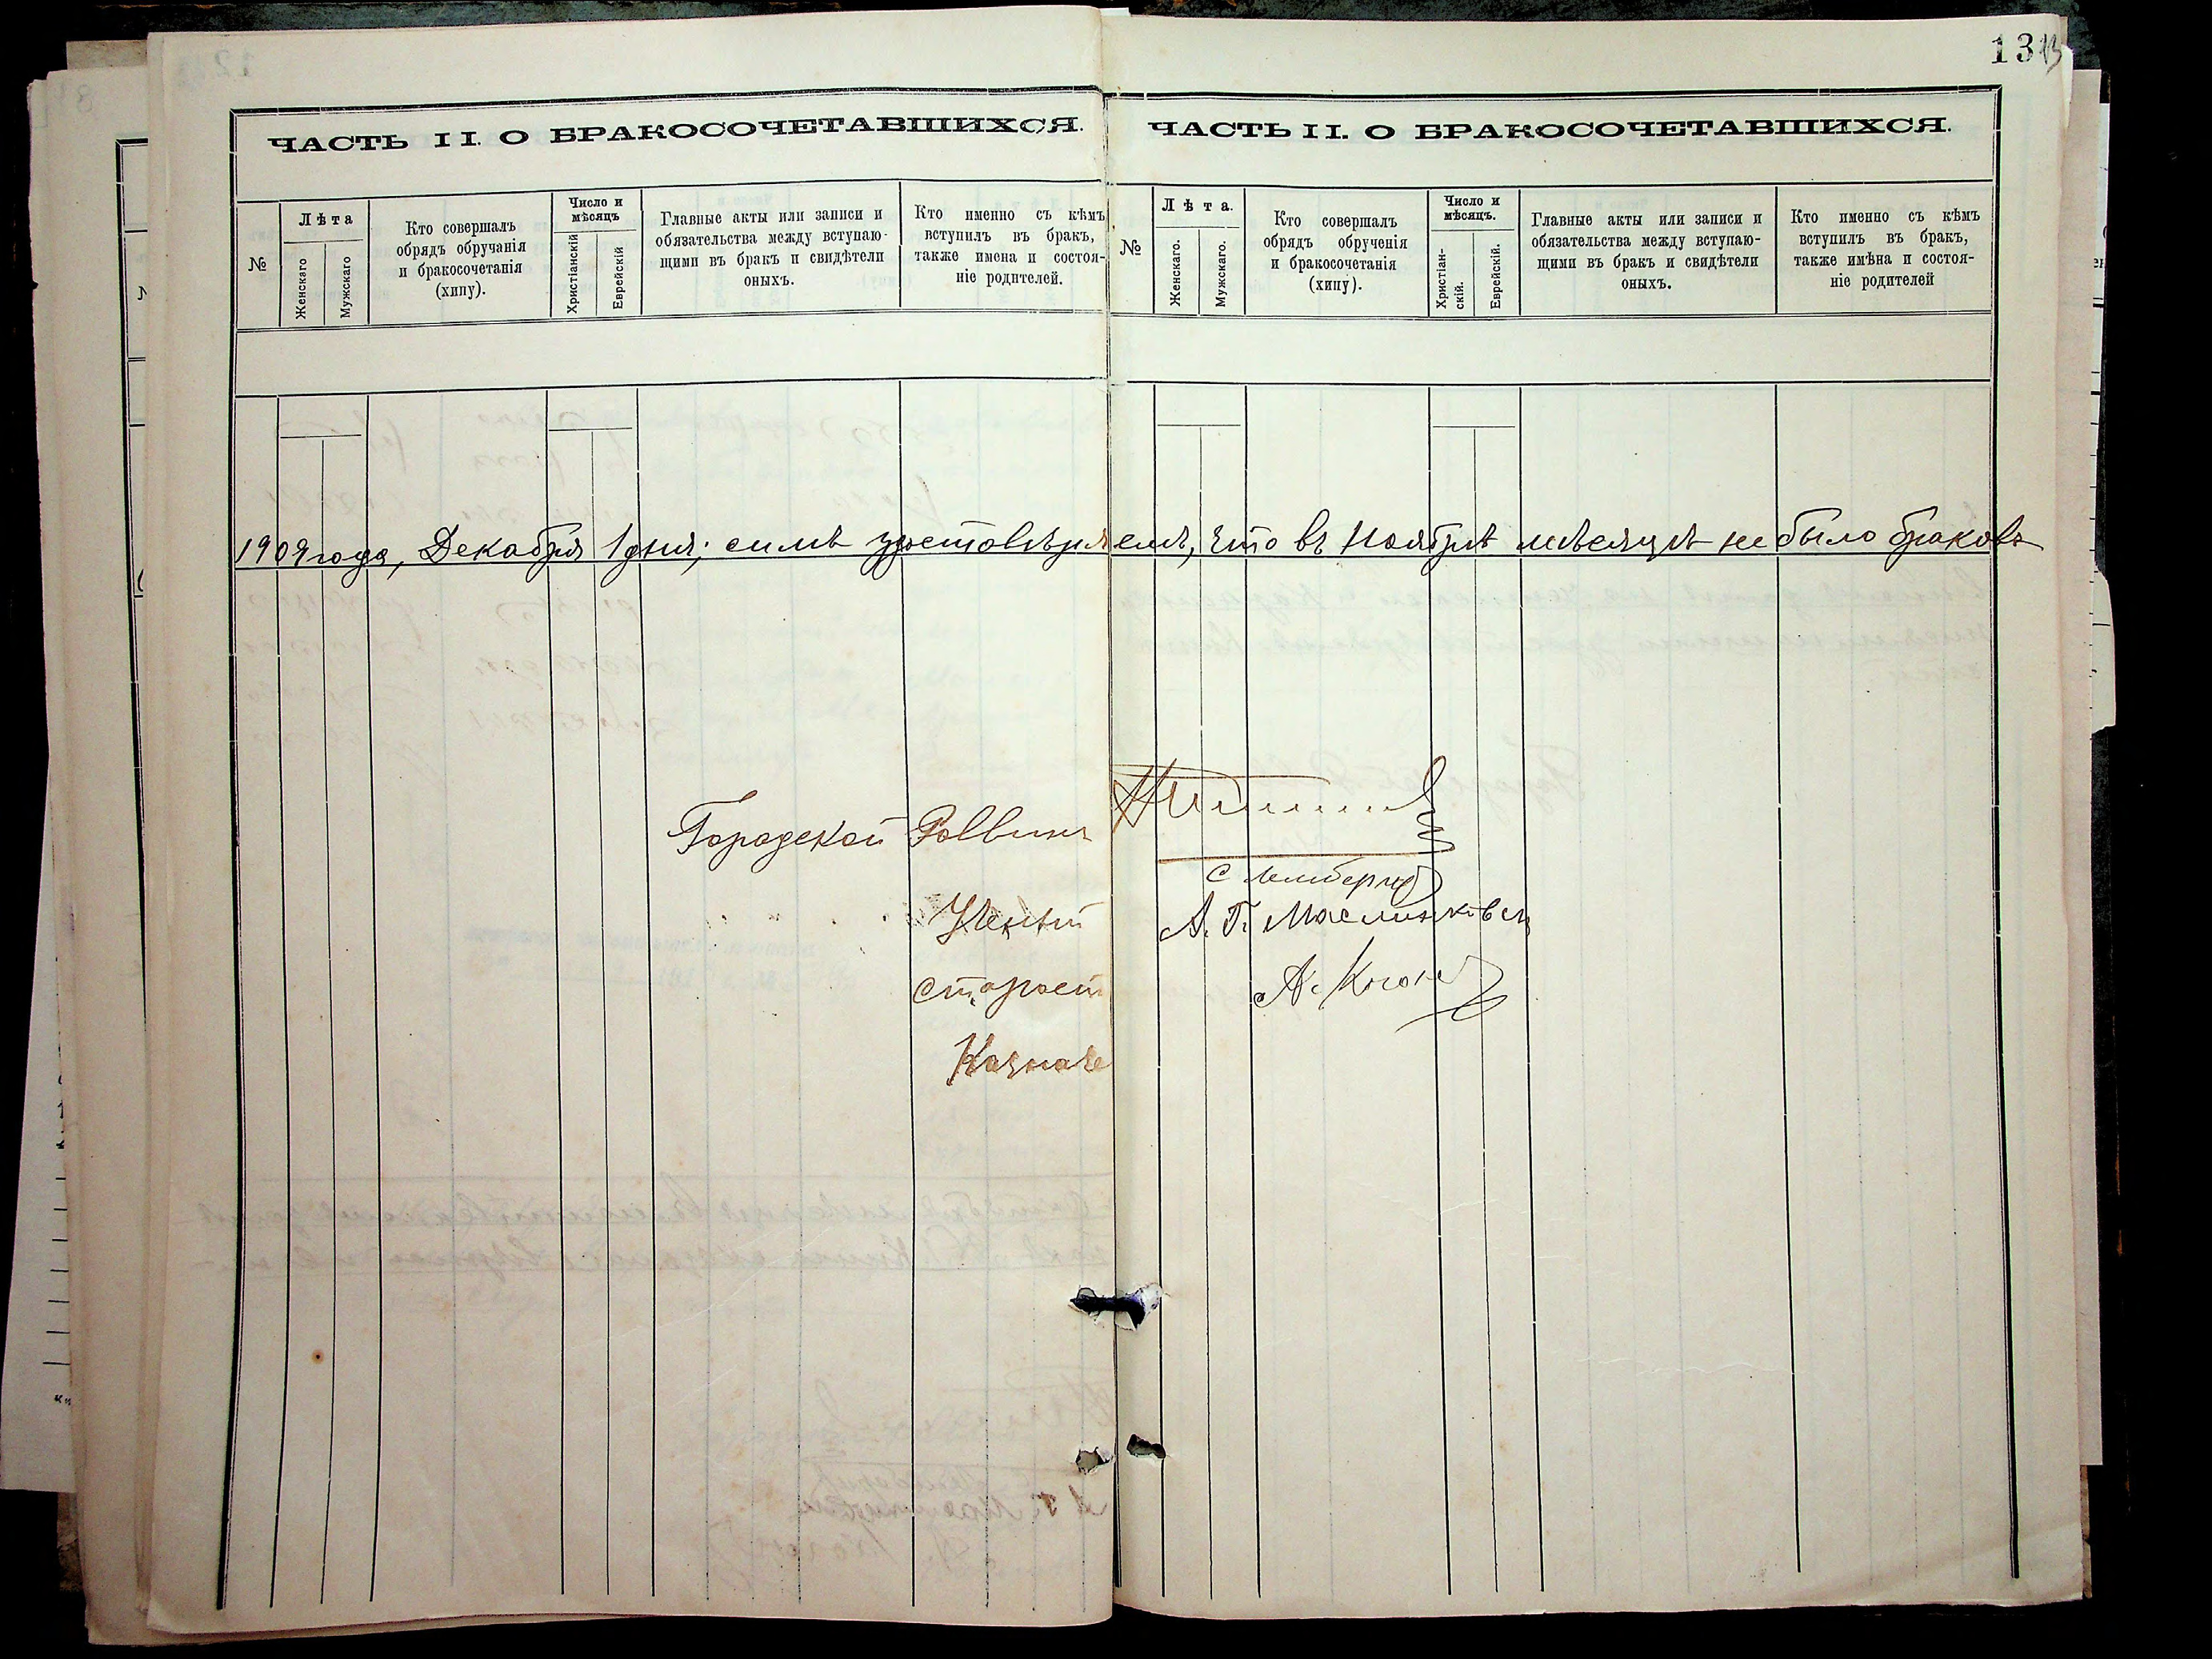 13
ЧАСТЬ II. О БРАКОСОЧЕТАВШИХСЯ.
№
Лѣта
Женскаго
Мужскаго
Кто совершалъ
обрядъ обручанія
и бракосочетанія
(хипу).
Число и
мѣсяцъ
Христіанскій
Еврейскій
Главные акты или записи и
обязательства между вступаю-
щими въ бракъ и свидѣтели
оныхъ.
Кто именно съ кѣмъ
вступилъ въ бракъ,
также имена и состоя-
ніе родителей.
ЧАСТЬ II. О БРАКОСОЧЕТАВШИХСЯ.
№
Лѣта.
Женскаго.
Мужскаго.
Кто совершалъ
обрядъ обрученія
и бракосочетанія
(хипу).
Число и
мѣсяцъ.
Христіан-
скій.
Еврейскій.
Главные акты или записи и
обязательства между вступаю-
щими въ бракъ и свидѣтели
оныхъ.
Кто именно съ кѣмъ
вступилъ въ бракъ,
также имѣна и состоя-
ніе родителей
1909 года, Декабря 1 дня; симъ удостовѣряемъ, что въ Ноябрѣ мѣсяцѣ не было браковъ
Городской Раввинъ
Ученый
старост
А. Коган
Казначе